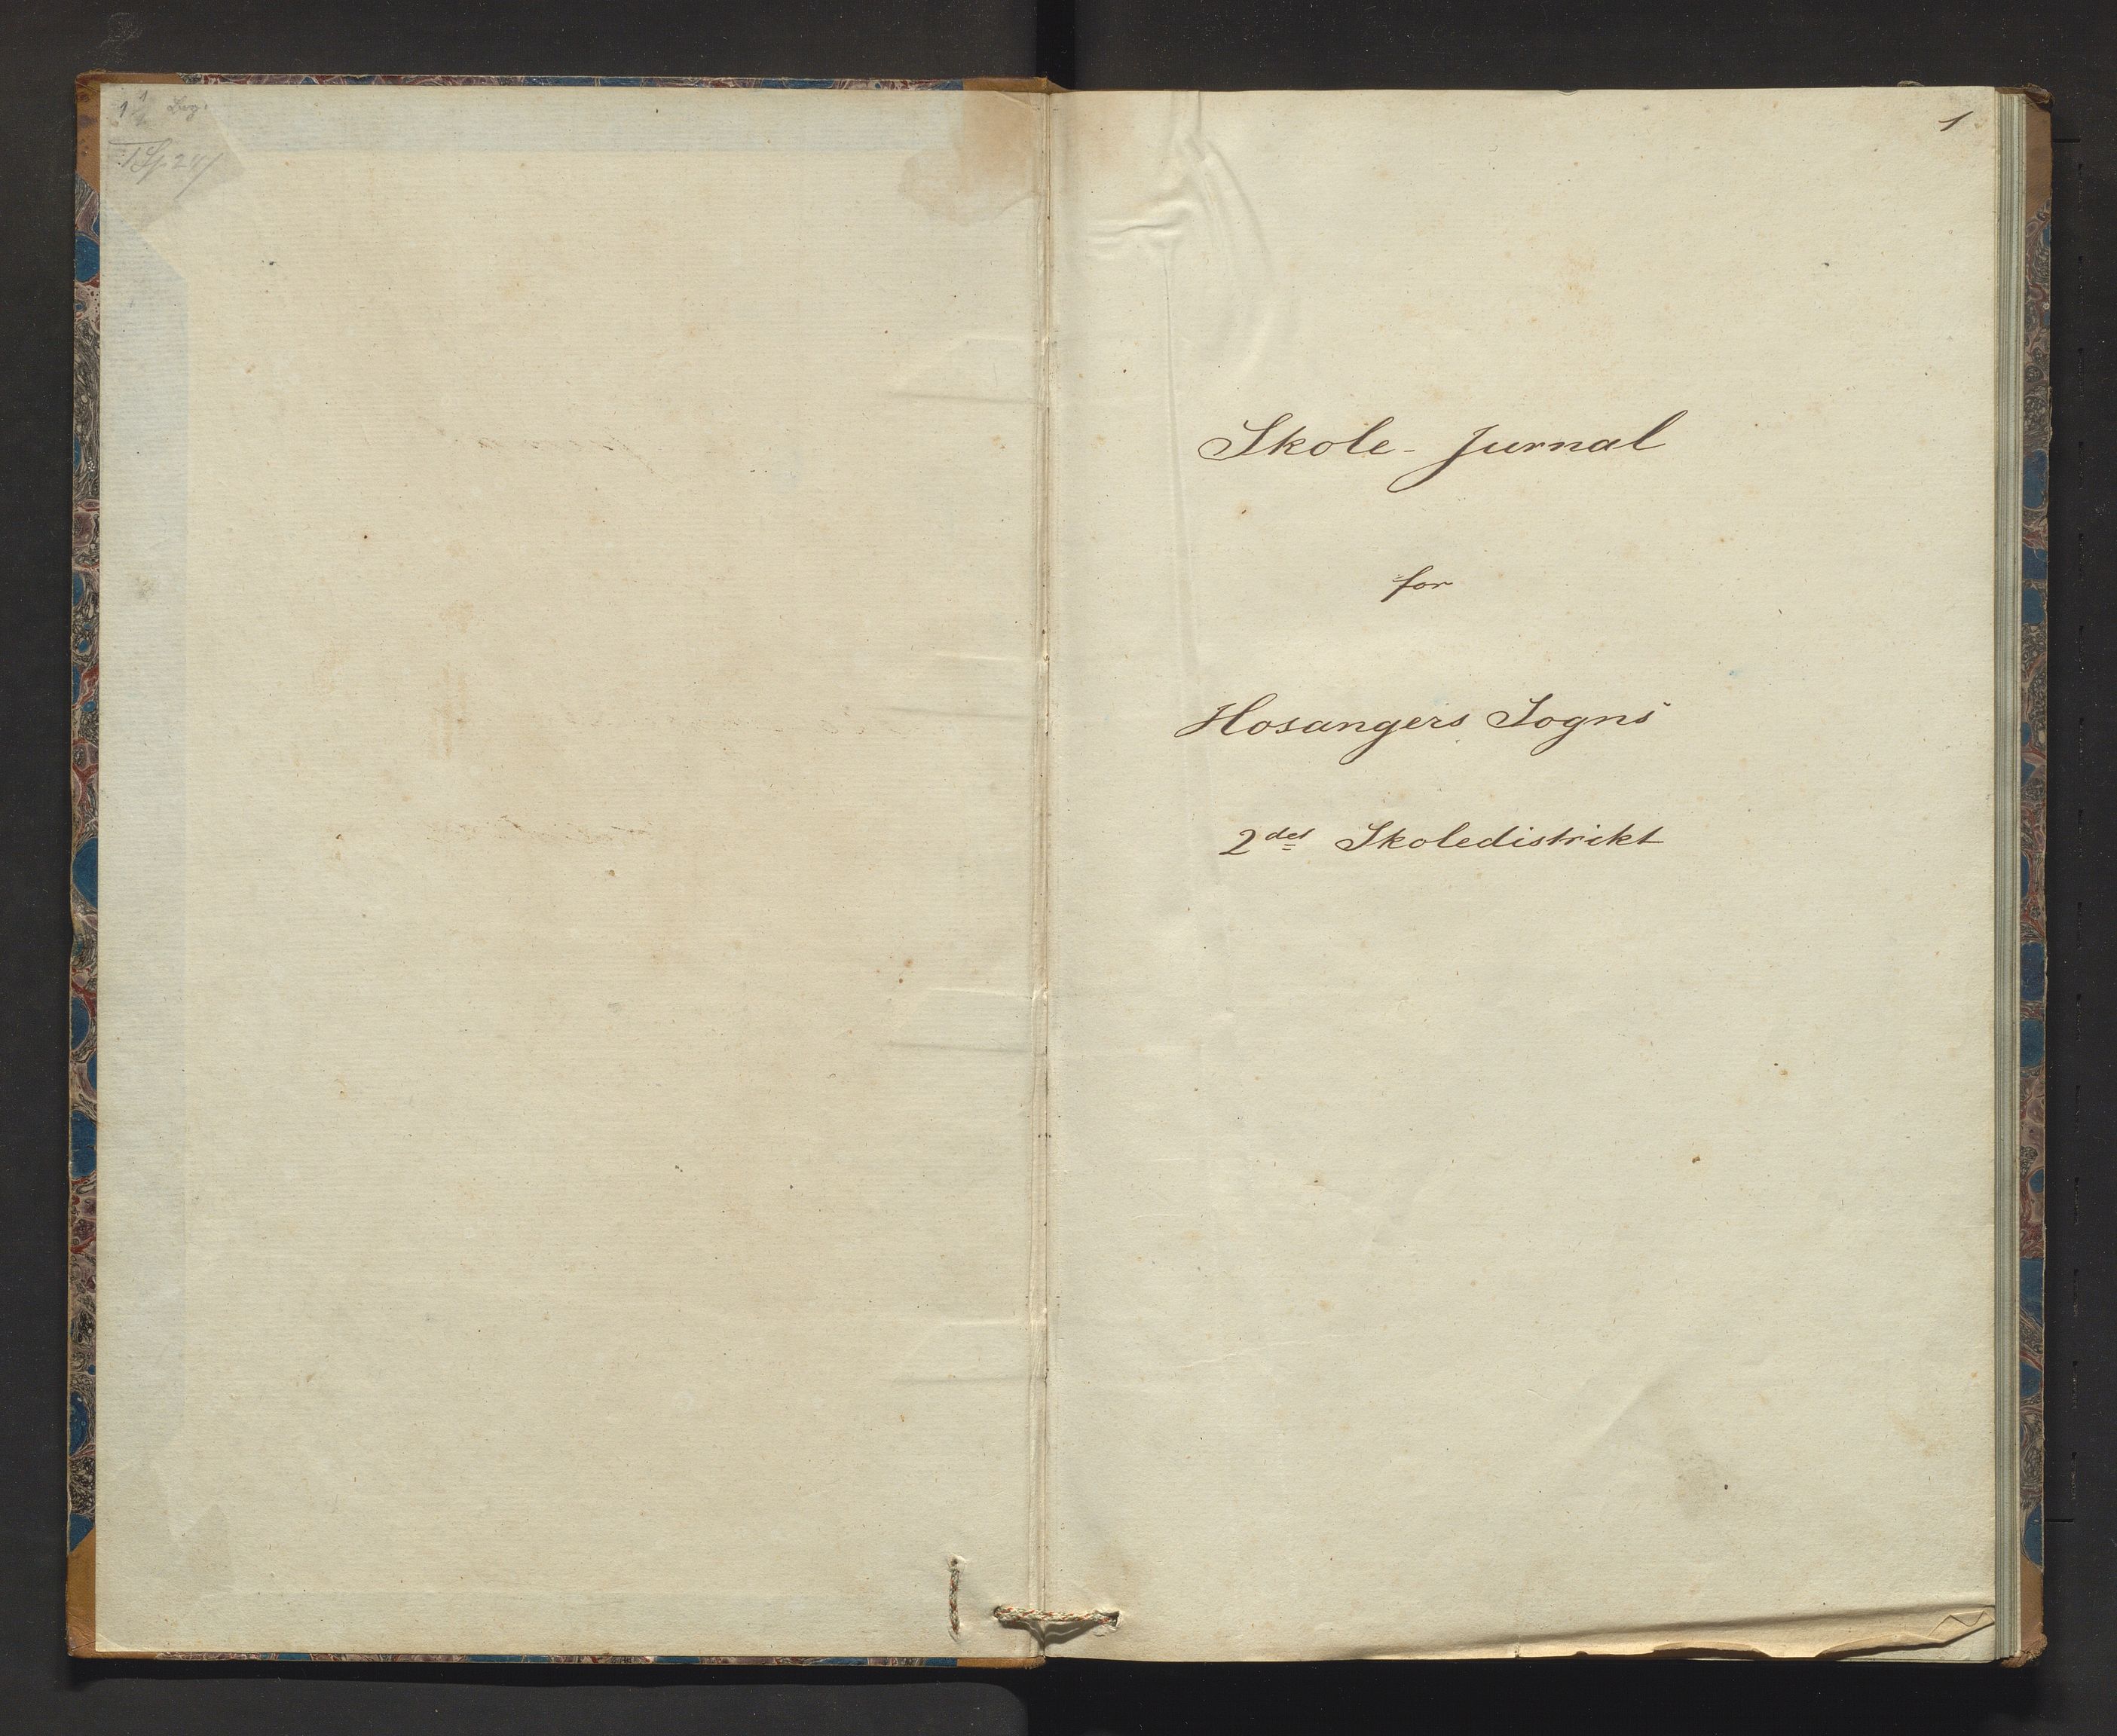 1
Skole-Jurnal
for
Hosangers Sogns
2det Skoledistrikt